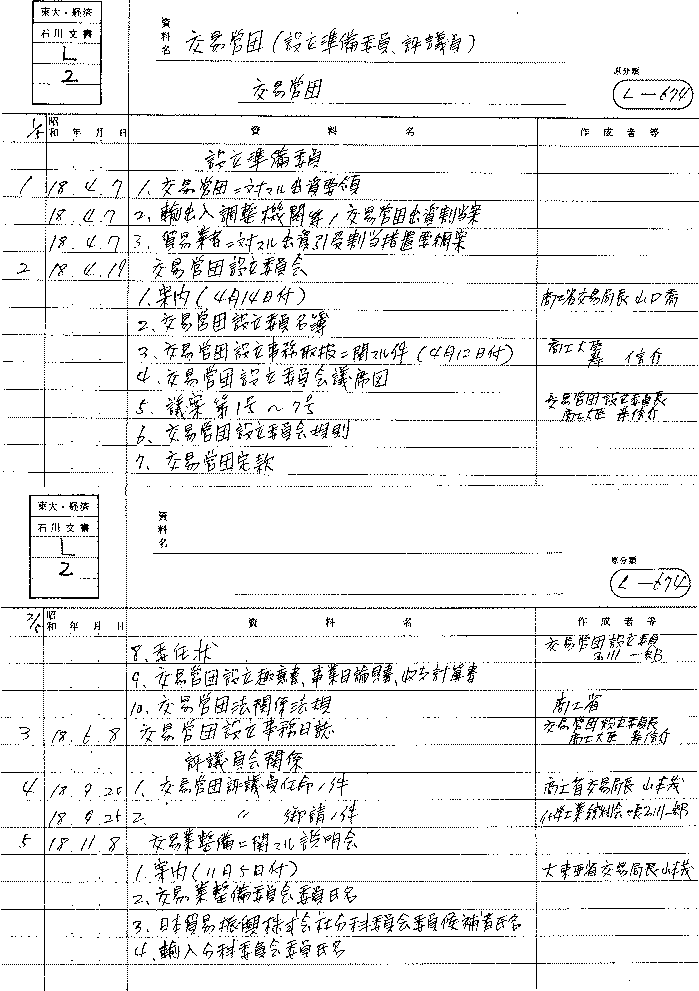 東大・経済
石川文書
L
2
資料名 交易営団(設立準備委員、評議員)
交易営団
原分類
L-674
1/5 昭和 年 月 日 資 料 名 作成者等
設立準備委員
1 18.4.7 1.交易営団ニ対スル出資要領
18.4.7 2.輸出入調整機関等ノ交易営団出資割当案
18.4.7 3.貿易業者ニ対スル出資引受割当措置要綱案
2 18.4.19 交易営団設立委員会
1.案内(4月14日付) 商工省交易局長 山口喬
2.交易営団設立委員名簿
3.交易営団設立事務取扱ニ関スル件(4月12日付) 商工大臣 岸 信介
4.交易営団設立委員会議席図
5.議案第1号~7号 交易営団設立委員長 商工大臣 岸信介
6.交易営団設立委員会規則
7.交易営団定款
東大・経済
石川文書
L
2
資料名
原分類
L-674
2/5 昭和 年 月 日 資 料 名 作成者等
8.委任状 交易営団設立委員 石川一郎
9.交易営団設立趣意書、事業目論見書、収支計算書
10.交易営団法関係法規 商工省
3 18.6.8 交易営団設立事務日誌 交易営団設立委員長 商工大臣 岸信介
評議員会関係
4 18.9.25 1.交易営団評議員任命ノ件 商工省交易局長 山本茂
18.9.25 2. 〃 御請ノ件 化学工業統制会々長石川一郎
5 18.11.8 交易業整備ニ関スル説明会
1.案内(11月5日付) 大東亜省交易局長山本茂
2.交易業整備委員会委員氏名
3.日本貿易振興株式会社分科委員会委員候補者氏名
4.輸入分科委員会委員氏名